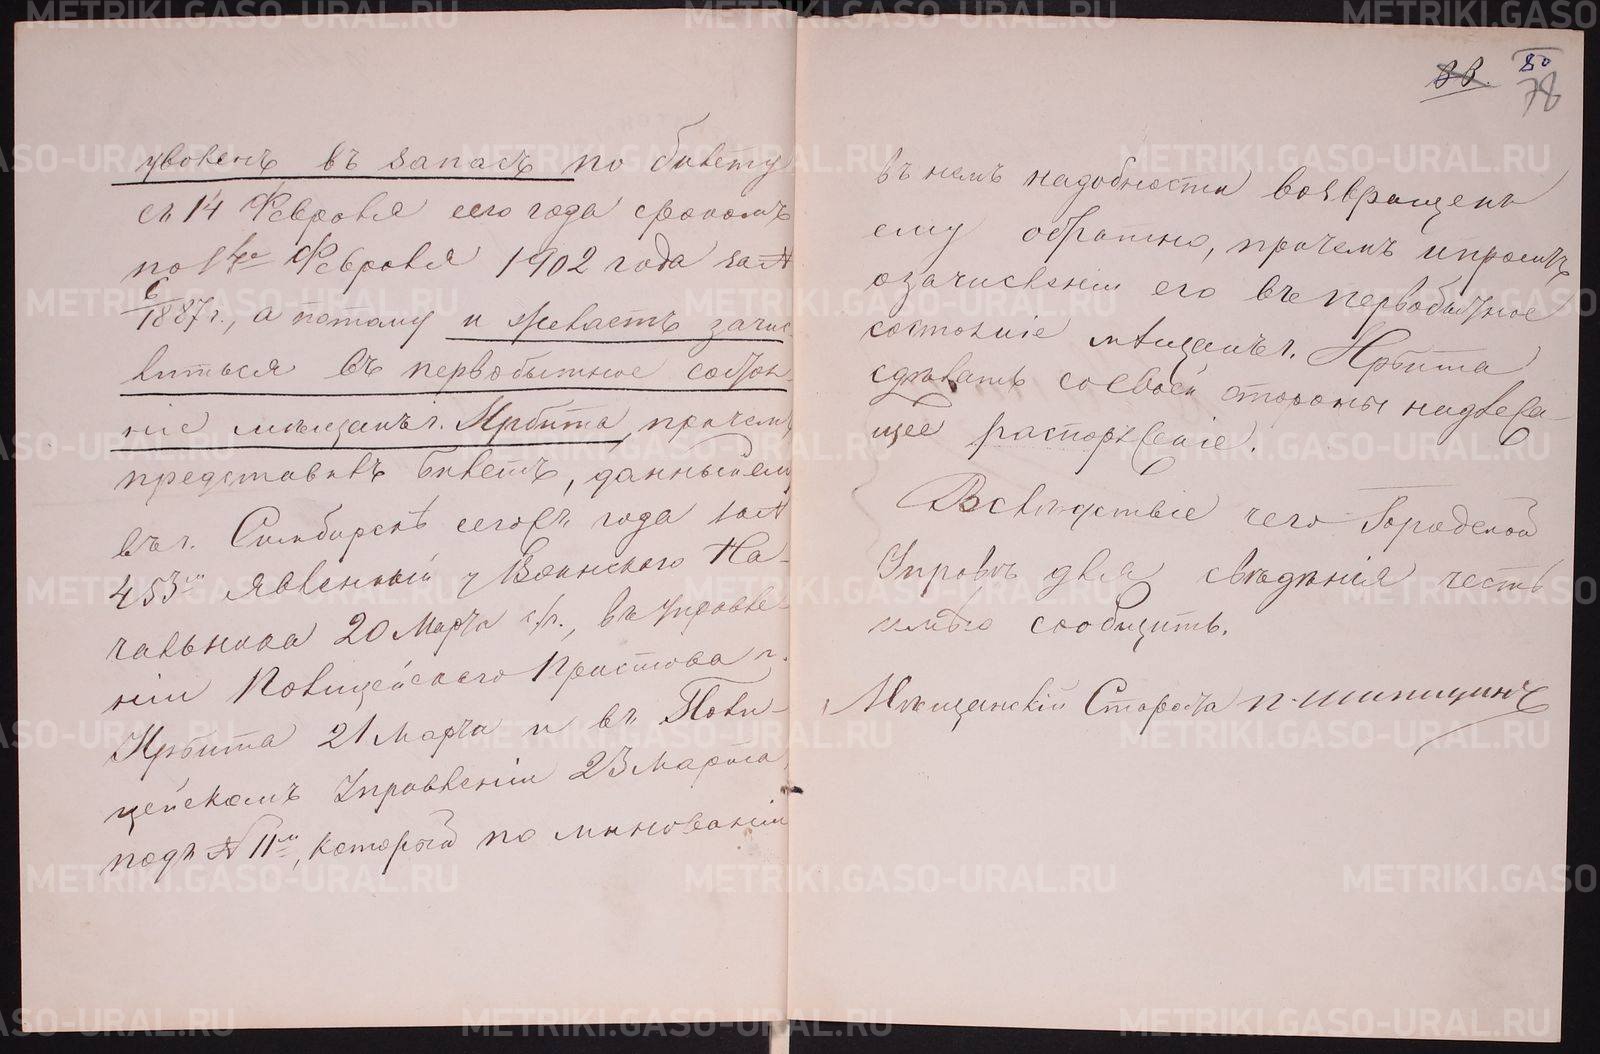 уволенъ въ запасъ по билету
съ 14 Февраля сего года срокомъ
по 1е Февраля 1902 года за №
6/1887 г., а потому и желаетъ зачис
литься въ первобытное состоя-
ніе мѣщанъ г. Ирбита, причемъ
представилъ билетъ, данный ему
въ г. Симбирскѣ сего года за №
453мъ явленный у Воинскаго На-
чальника 20 Марта с/г., въ Управле-
ніи Полицейскаго Пристава г.
Ирбита 21 Марта и въ Поли-
цейскомъ Управленіи 23 Марта
подъ № 11мъ, который по минованіи
88. 80
78
въ немъ надобности возвращенъ
ему обратно, причемъ и проситъ
о зачисленіи его въ первобытное
состояніе мѣщанъ г. Ирбита
сдѣлать со своей стороны надлежа-
щее распоряженіе.
Вслѣдствіе чего Городской
Управѣ для свѣдѣнія честь
имѣю сообщить.
Мѣщанскій Староста П. Шипицинъ
METRIKI.GASO-URAL.RU